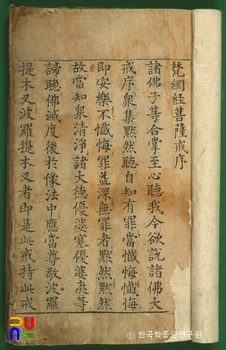 梵網經菩薩戒序
諸佛子等合掌至心聽我今欲說諸佛大
戒序衆集默然聽自知有罪當懺悔懺悔
即安樂不懺悔罪益深無罪者默然默然
故當知衆清淨諸大德優婆塞優婆夷等
諦聽佛滅度後於像法中應當尊敬波羅
提木叉波羅提木叉者即是此戒持此戒
한국학중앙연구원